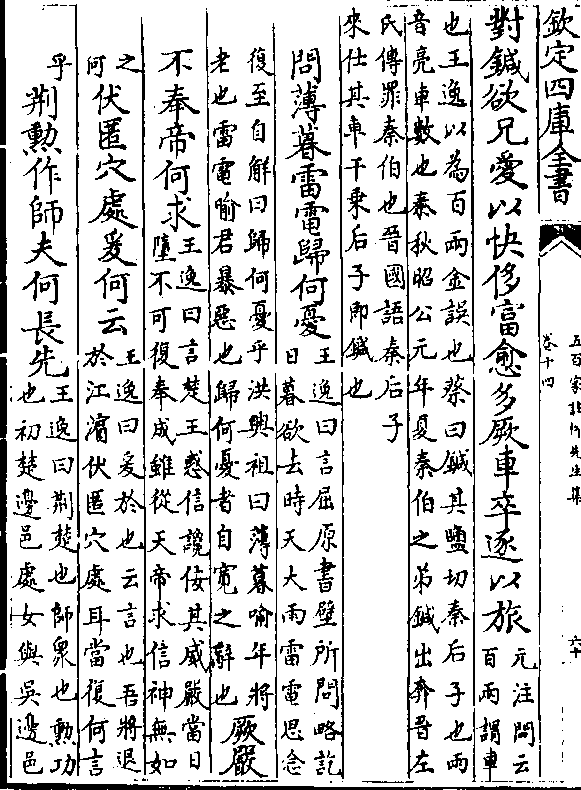 欽定四庫全書
五百家註柳先生集
卷十四
六十
對鍼欲兄愛以快侈富愈多厥車卒逐以旅
元注問云
百兩謂車
也王逸以為百兩金誤也蔡曰鍼其鹽切秦后子也兩
音亮車數也春秋昭公元年夏秦伯之弟鍼出奔晉左
氏傳罪秦伯也晉國語秦后子
來仕其車千乘后子即鍼也
問薄暮雷電歸何憂
王逸曰言屈原書壁所問略訖
日暮欲去時天大雨雷電思念
復至自解曰歸何憂乎洪興祖曰薄暮喻年將
老也雷電喻君暴惡也歸何憂者自寛之辭也
厥嚴
不奉帝何求
王逸曰言楚王惑信讒佞其威嚴當日
墮不可復奉成雖從天帝求信神無如
之
何
伏匿穴處爰何云
王逸曰爰於也云言也吾將退
於江濵伏匿穴處耳當復何言
乎
荆勲作師夫何長先
王逸曰荆楚也師衆也勲功
也初楚邊邑處女與吳邊邑